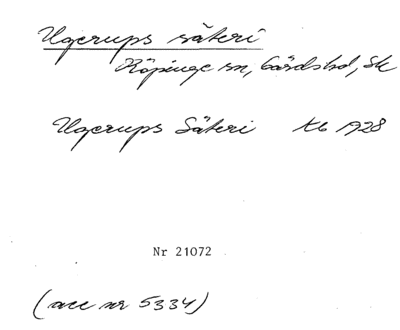 Ugerups säteri
Köpinge sn, Gärds hd, Sk
Ugerups Säteri tr 1928
Nr 21072
(acc nr 5334)